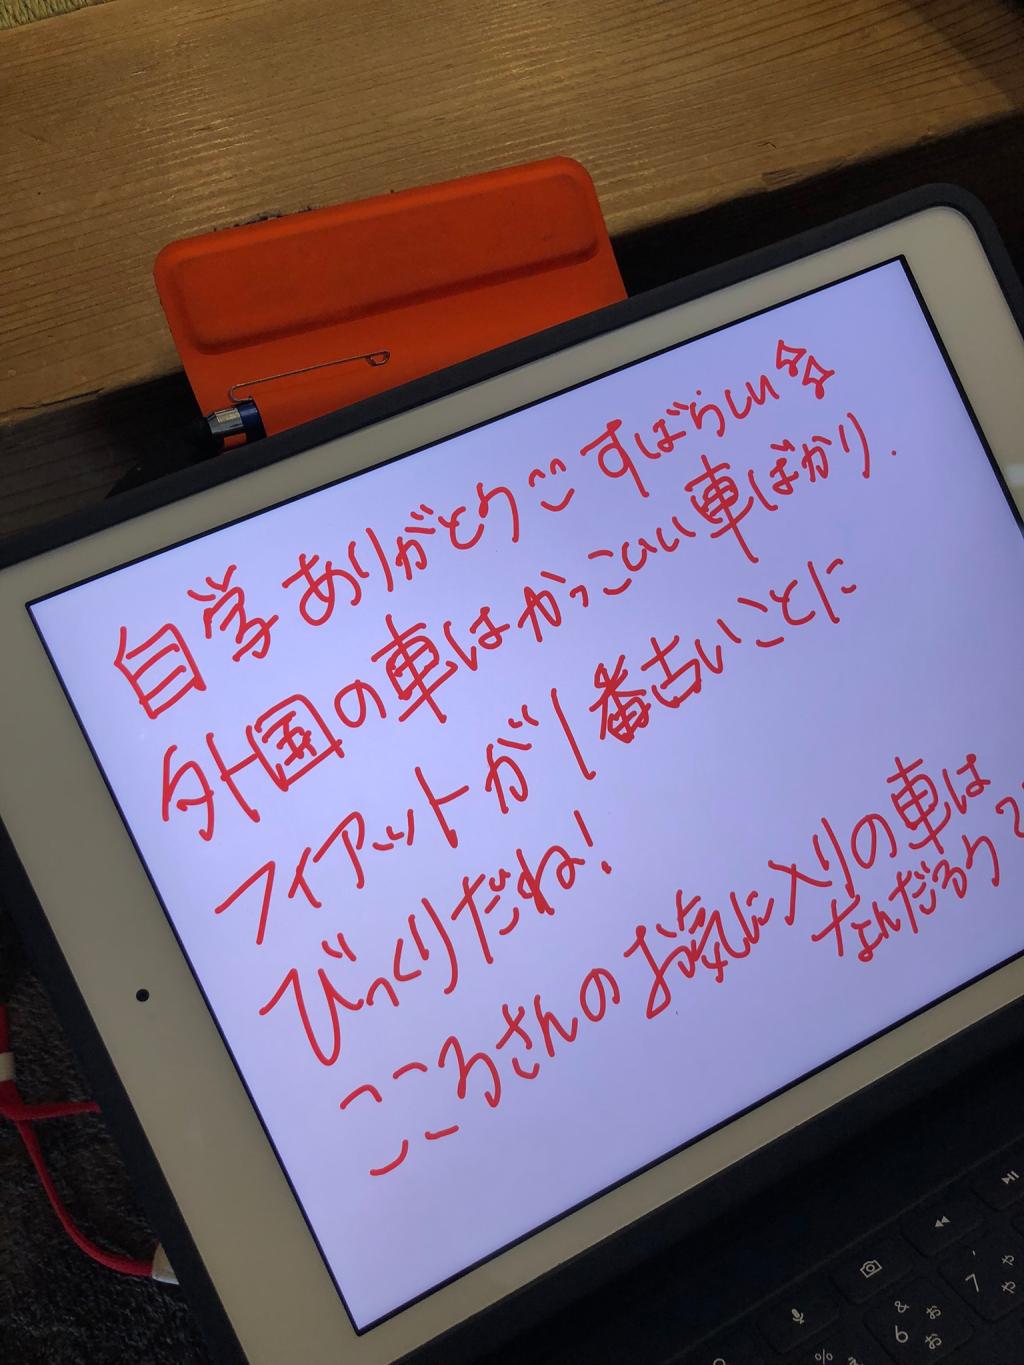 自学ありがとう ござ すばらしい☆☆
外国の車はかっこいい車ばかり.
フィアットが1番古いことに
びっくりだね!
こころさんのお気に入りの車は
なんだろう?
&
6
お
ぉ
'
7
や
ゃ
%